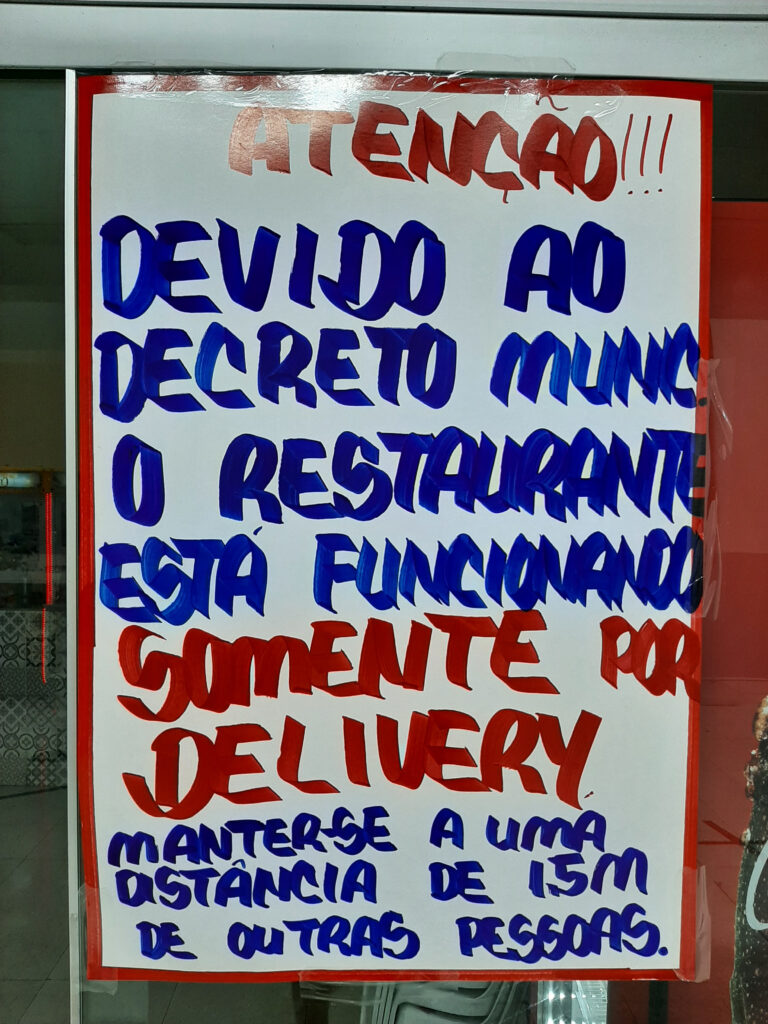 ATENÇÃO!!!
DEVIDO AO
DECRETO MUNIC.
O RESTAURANTE
ESTÁ FUNCIONANDO
SOMENTE POR
DELIVERY
MANTER-SE A UMA
DISTÂNCIA DE 1,5M
DE OUTRAS PESSOAS.